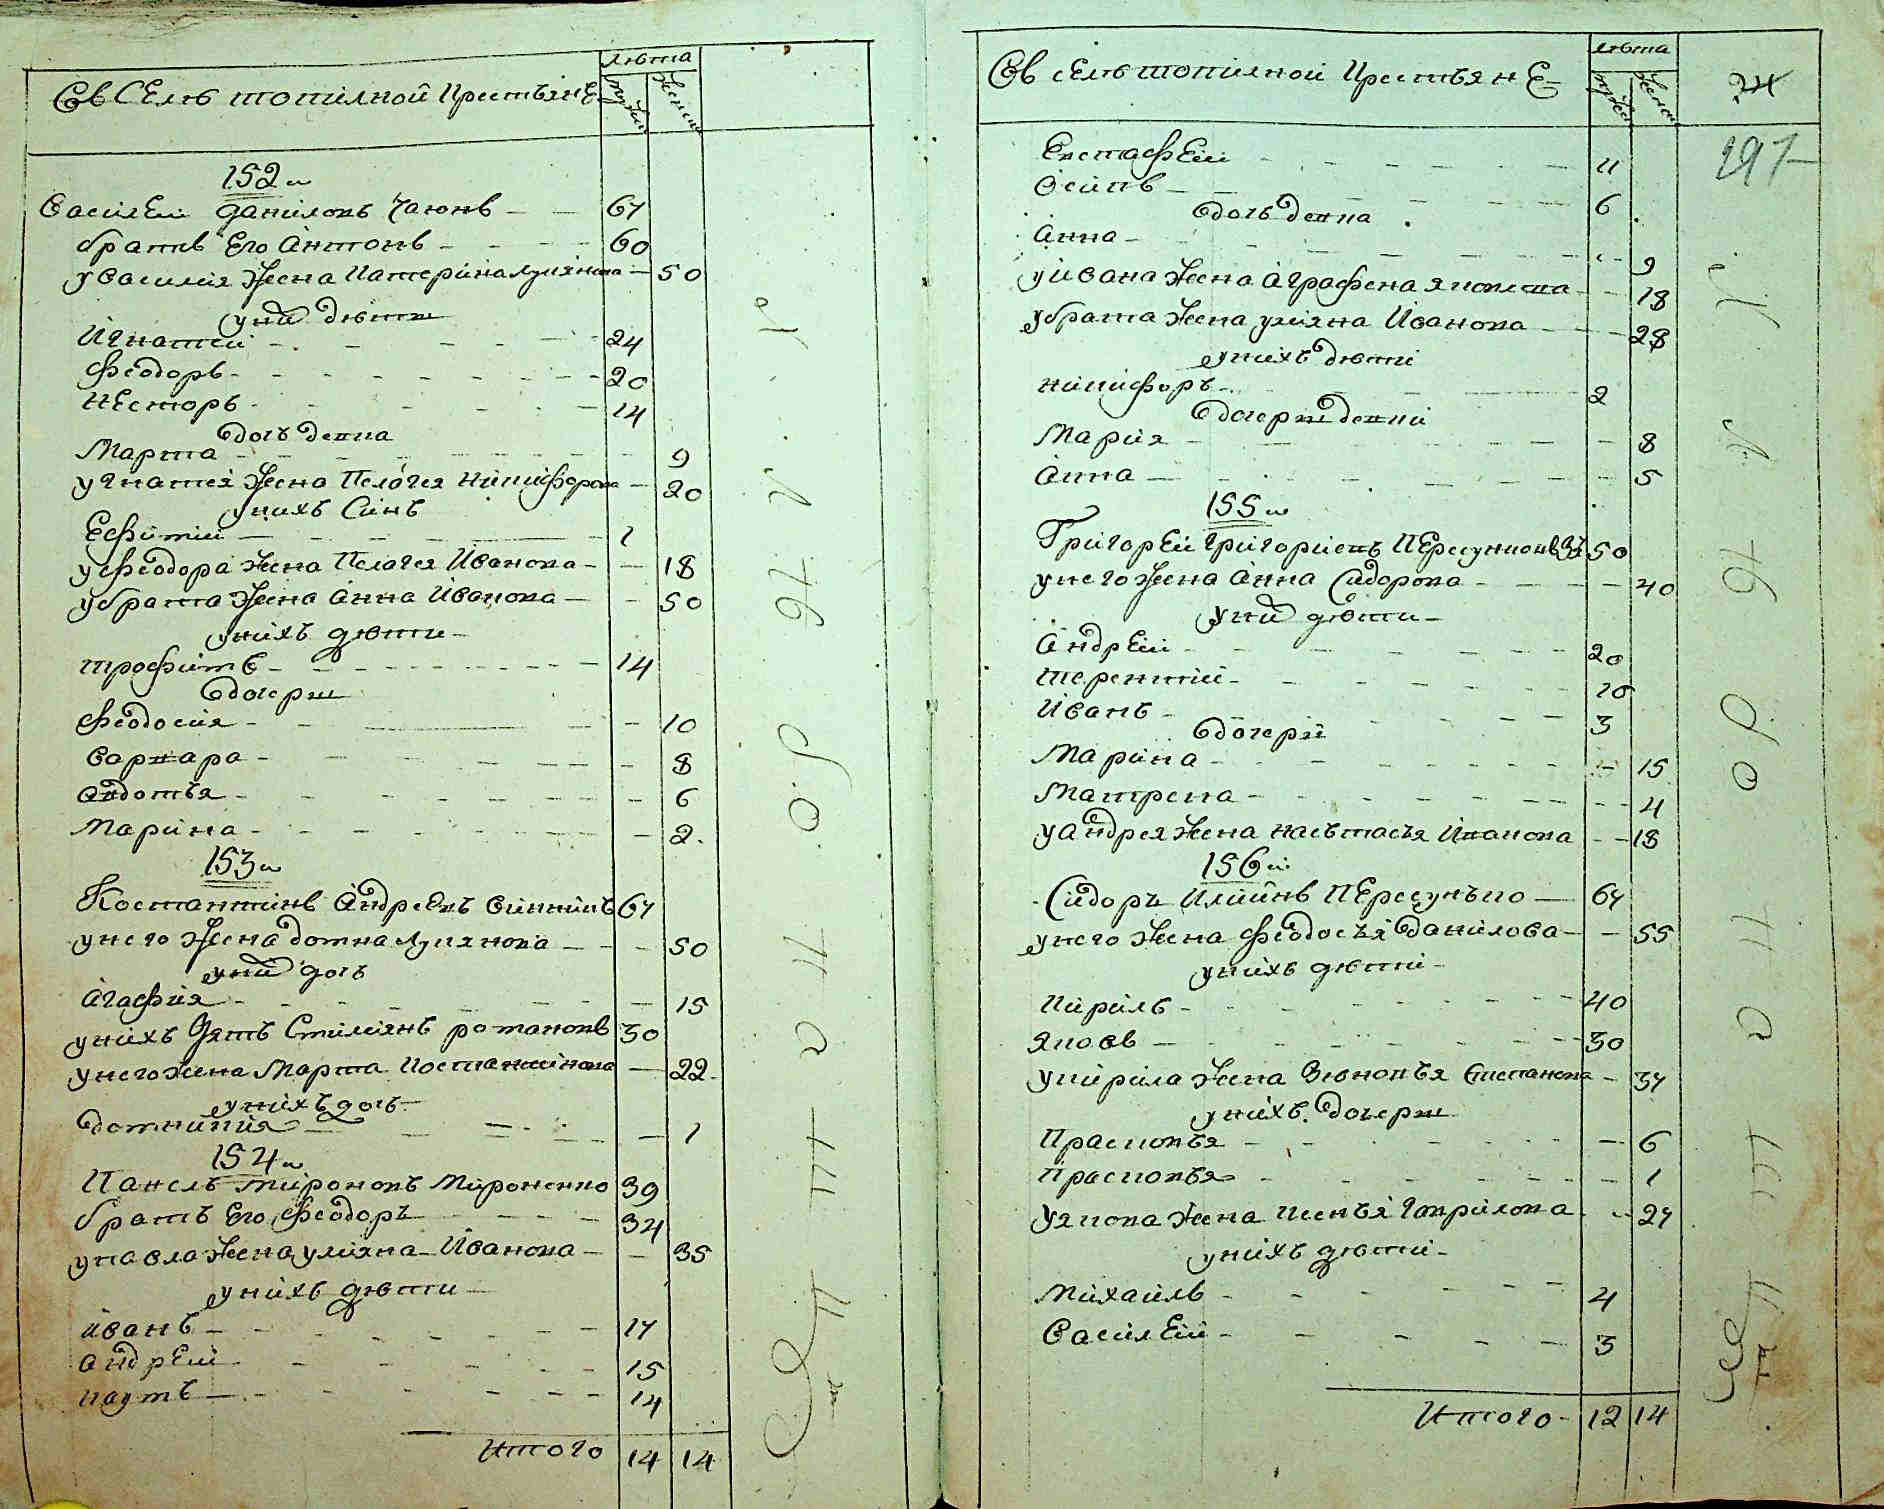 Въ Селѣ топилной Крестьянѣ
лѣта
мужск
женск
152 и
Василей Даниловъ Чаюнъ 67
братъ Его Антонъ 60
у Василия жена Катерина Лукянова 50
у них дѣти
Игнатей 24
Феодоръ 20
Несторъ 14
дочь девка
Марта 9
у Игнатея жена Пелагея Никифорова 20
у нихъ Синъ
Ефимий 1
у Феодора жена Пелагея Иванова 18
у брата жена Анна Иванова 50
у нихъ дѣти
трофимъ 14
дочери
Феодосия 10
варвара 8
авдотья 6
Марина 2
153 и
Костантинъ Андреевъ 67
у него жена домна Лукянова 50
у них дочь
Агафия 15
у нихъ Зять Стилиянъ романовъ 30
у него жена Марта Костантинова 22
у нихъ дочь
домникия 1
154 и
Павелъ мироновъ Мироненко 39
братъ Его Феодоръ 34
у павла жена улияна Иванова 35
у нихъ дѣти
иванъ 17
андрей 15
наумъ 14
Итого 14 14
Въ селѣ топилной Крестьянѣ
лѣта
мужск
женск
24
297
Евстафей 11
Осипъ 6
дочь девка
Анна 9
у ивана жена Аграфена Яковлева 18
у брата жена улияна Иванова 28
у нихъ дѣти
никифоръ 2
дочери девки
Мария 8
Анна 5
155 и
Григорей Григориевъ 50
у него жена Анна Сидорова 40
у них дѣти
Андрей 20
терентий 10
Иванъ 3
дочери
Марина 15
Матрена 4
у Андрея жена настасья Иванова 18
156 и
Сидоръ Илиинъ Пересунько 64
у него жена Феодосья Данилова 55
у нихъ дѣти
Кирилъ 40
Яковъ 30
у кирила жена Зѣновья Степанова 34
у нихъ дочери
Прасковья 6
Прасковья 1
у якова жена ксенья Гаврилова 27
у нихъ дѣти
Михаилъ 4
Василей 3
Итого 12 14